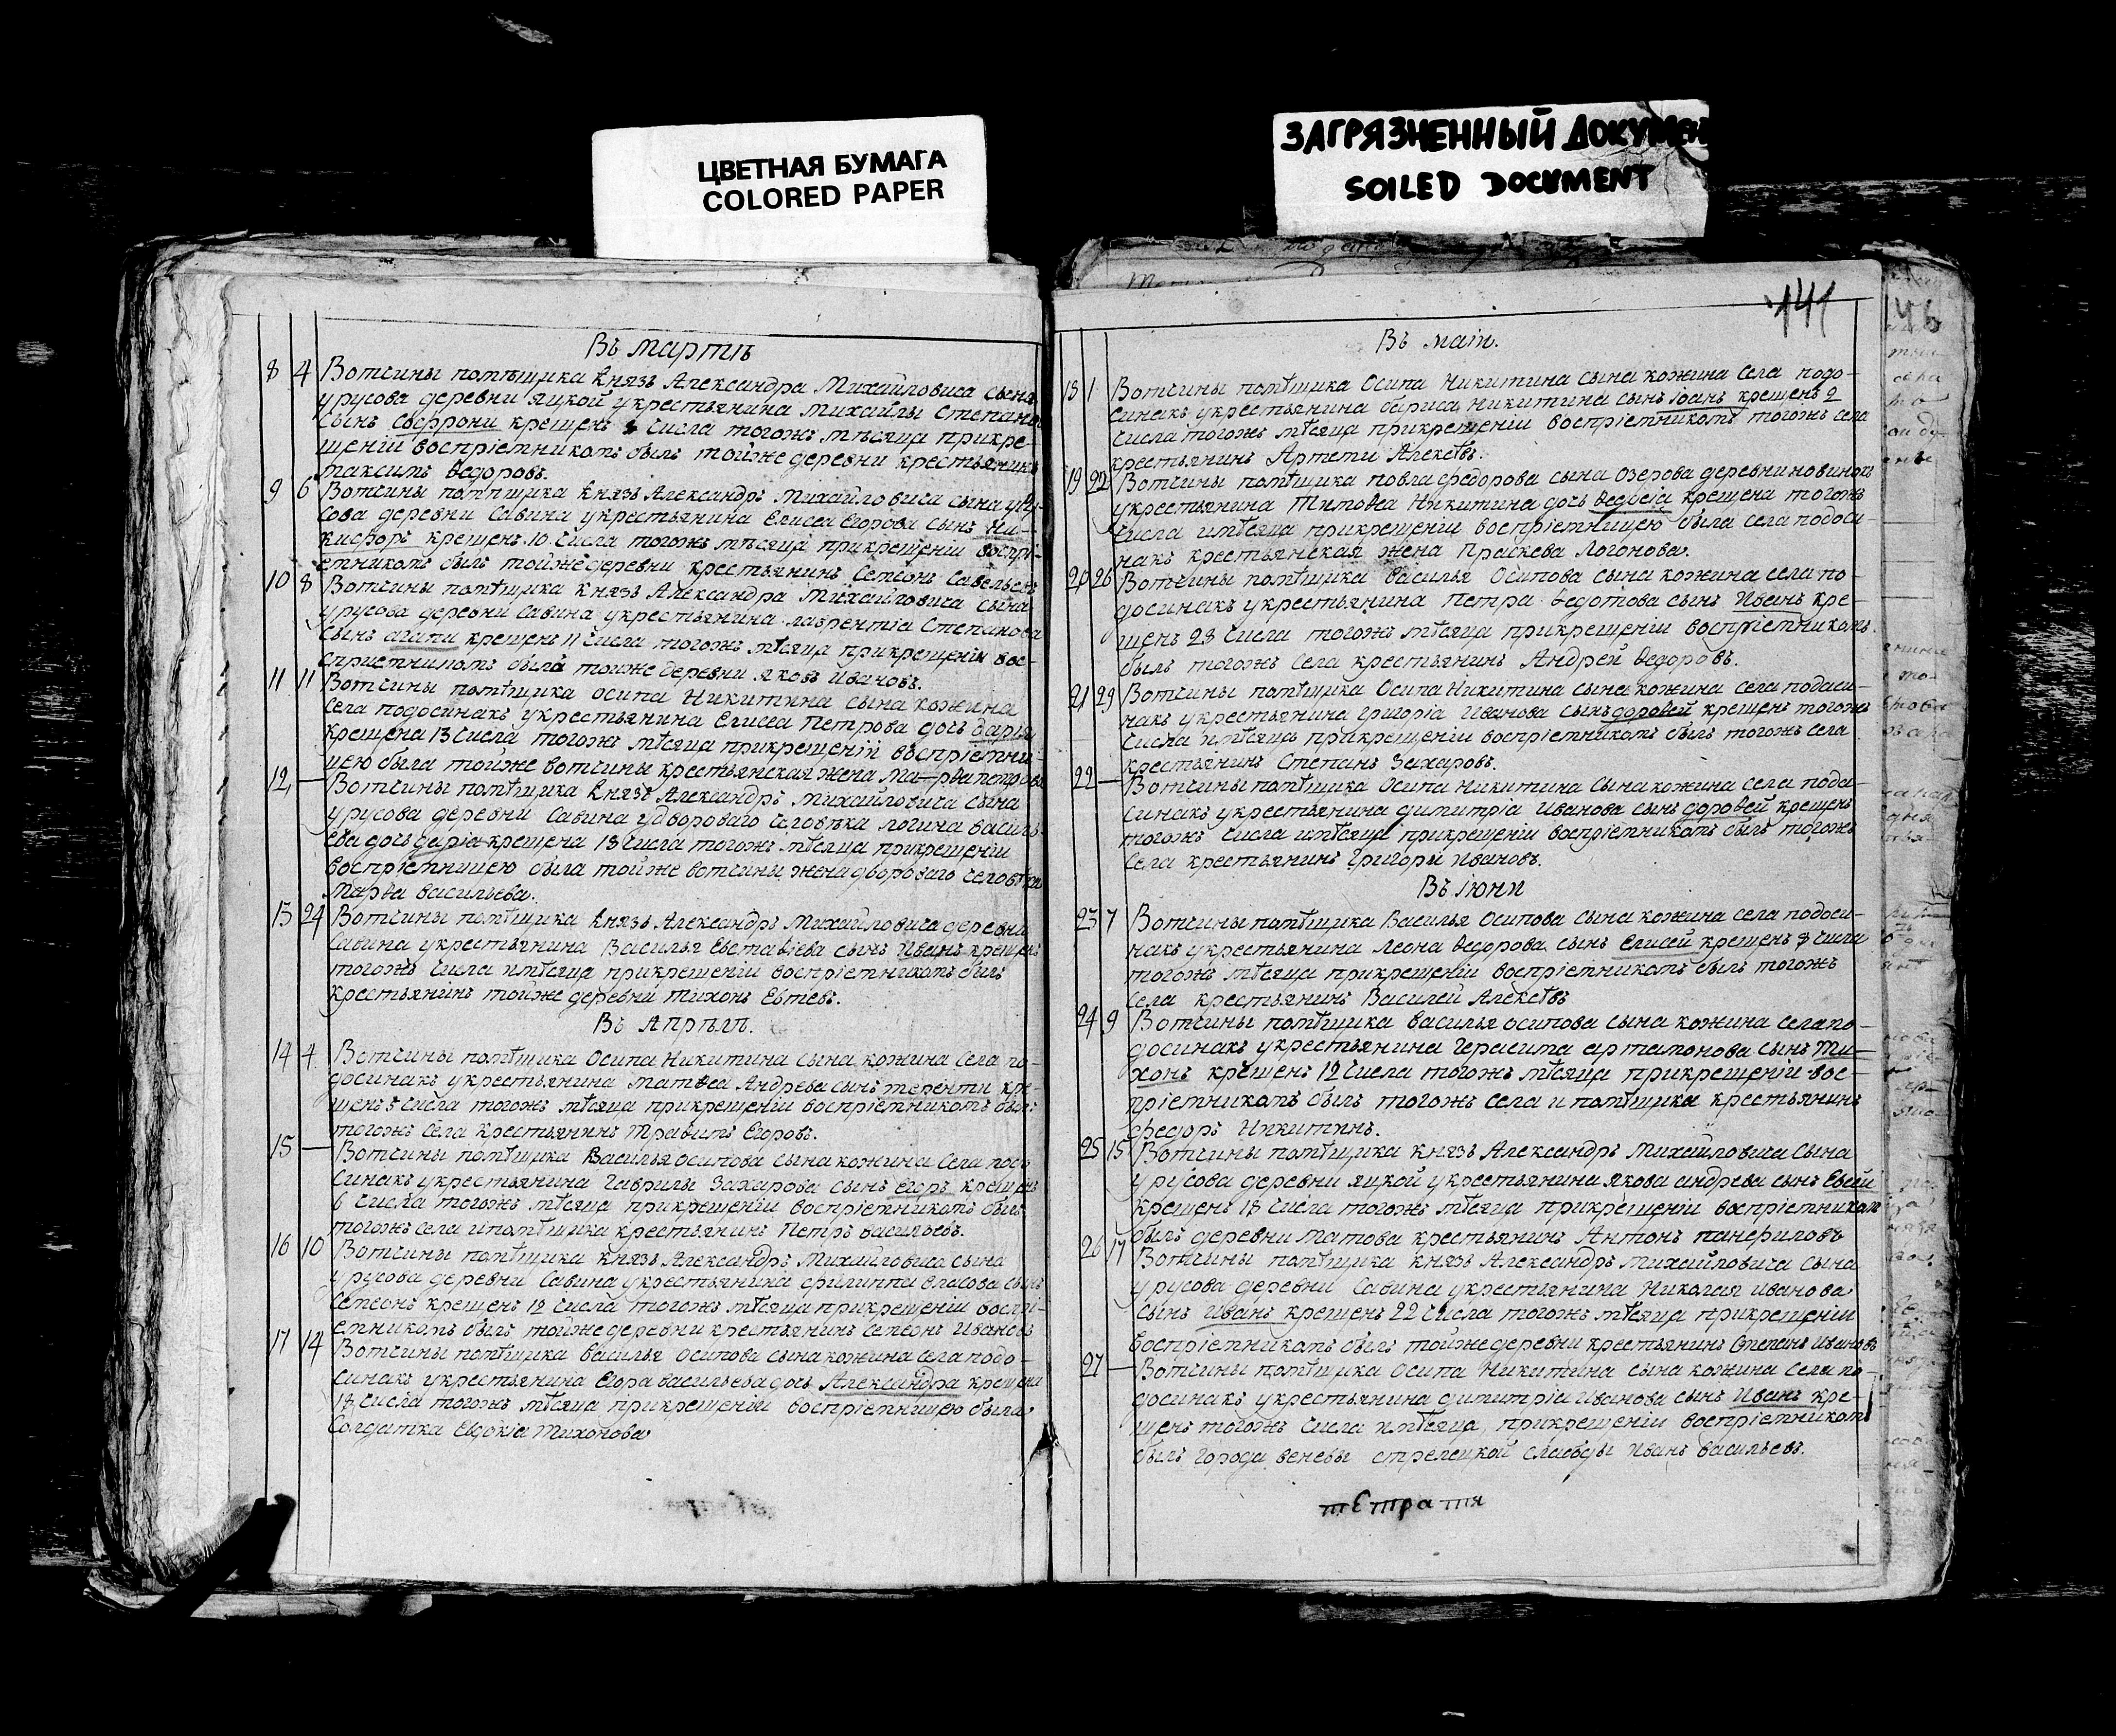 ЦВЕТНАЯ БУМАГА
COLORED PAPER
ЗАГРЯЗНЕННЫЙ ДОКУМЕН
SOILED DOCUMENT
Въ мартѣ
8 4 Вотчины помѣщика Князь Александра Михайловича сына
урусова деревни яцкой укрестьянина михайлы Степано
сынъ Софрони крещенъ числа тогожъ мѣсяца прикре-
щеніи воспріемникомъ былъ тойже деревни крестьянинъ
максимъ Ѳедоровъ.
9 6 Вотчины помѣщика Князь Александръ Михайловича сына уру-
сова деревни Савина укрестьянина Елисея Егорова сынъ Ни-
кифоръ крещенъ 10 числа тогожъ мѣсяца прикрещеніи воспрі-
емникомъ былъ тойже деревни крестьянинъ Семіонъ Савельевъ
10 8 Вотчины помѣщика Князь Александра Михайловича сына
урусова деревни Савина укрестьянина лаврентіа Степанова
сынъ агапи крещенъ 11 числа тогожъ мѣсяца прикрещеніи вос-
приемникомъ былъ тойже деревни яковъ Ивановъ.
11 11 Вотчины помѣщика осипа Никитина сына кожина
села подосинакъ укрестьянина Елисея Петрова дочь дарія
крещена 13 числа тогожъ мѣсяца прикрещеніи воспріемни-
цею была тойже вотчины крестьянская жена Ма-рѳа петрова
12 — Вотчины помѣщика Князь Александръ михайловича сына
урусова деревни Савина удвороваго человѣка логина василь
ева дочь дарія крещена 13 числа тогожъ мѣсяца прикрещеніи
воспріемницею была тойже вотчины жена двороваго человѣка
марѳа васильева.
13 24 Вотчины помѣщика Князь Александръ Михайловича деревни
Савина укрестьянина Василья Евстаѳіева сынъ Иванъ крещенъ
тогожъ числа имѣсяца прикрещеніи воспріемникомъ былъ
крестьянинъ тойже деревни тихонъ Евтеевъ.
Въ Апрѣлѣ.
14 4 Вотчины помѣщика Осипа Никитина сына кожина села по
досинакъ укрестьянина матѳеа Андрева сынъ теренти кре-
щенъ 5 числа тогожъ мѣсяца прикрещеніи воспріемникомъ былъ
тогожъ села крестьянинъ Егоровъ.
15 — Вотчины помѣщика Василья осипова сына кожина села подо
синакъ укрестьянина Гаврилы Захарова сынъ Егоръ крещенъ
6 числа тогожъ мѣсяца прикрещеніи воспріемникомъ былъ
тогожъ села ипомѣщика крестьянинъ Петръ васильевъ.
16 10 Вотчины помѣщика князь Александръ Михайловича сына
урусова деревни Савина укрестьянина филиппа власова сынъ
Семіонъ крещенъ 12 числа тогожъ мѣсяца прикрещеніи воспрі-
емникомъ былъ тойже деревни крестьянинъ семіонъ Ивановъ
17 14 Вотчины помѣщика василья осипова сына кожина села подо-
синакъ укрестьянина Егора васильева дочь Александра крещена
18 числа тогожъ мѣсяца прикрещеніи воспріемницею была
Солдатка Евдокіа Тихонова
141
Въ маіи.
18 1 Вотчины помѣщика Осипа Никитина сына кожина села подо-
синакъ укрестьянина бариса Никитина сынъ Іоанъ крещенъ 2
числа тогожъ мѣсяца прикрещеніи воспріемникомъ тогожъ села
крестьянинъ Артеми Алексѣвъ.
19 22 Вотчины помѣщика повла федорова сына Озерова деревни новинокъ
укрестьянина Тимоѳеа Никитина дочь Ѳедосіа крещена тогожъ
числа имѣсяца прикрещеніи воспріемницею была села подоси-
накъ крестьянская жена Праскева Логонова.
20 26 Вотчины помѣщика василья Осипова сына кожина села по-
досинакъ укрестьянина Петра Ѳедотова сынъ Иванъ кре-
щенъ 28 числа тогожъ мѣсяца прикрещеніи воспріемникомъ
былъ тогожъ села крестьянинъ Андрей Ѳедоровъ.
21 29 Вотчины помѣщика Осипа Никитина сына кожина села подаси-
накъ укрестьянина Григоріа Иванова сынъ дорофей крещенъ тогожъ
числа имѣсяца прикрещеніи воспріемникомъ былъ тогожъ села
крестьянинъ Степанъ Захаровъ.
22 — Вотчины помѣщика Осипа Никитина сына кожина села пода-
синакъ укрестьянина димитріа Иванова сынъ дорофей крещенъ
тогожъ числа имѣсяца прикрещеніи воспріемникомъ былъ тогожъ
села крестьянинъ Григори Ивановъ.
Въ іюни
23 7 Вотчины помѣщика Василья Осипова сына кожина села подоси-
накъ укрестьянина Леона Ѳедорова сынъ Елисей крещенъ 8 числа
тогожъ мѣсяца прикрещеніи воспріемникомъ былъ тогожъ
села крестьянинъ Василей Алексѣвъ
24 9 Вотчины помѣщика василья осипова сына кожина села по-
досинакъ укрестьянина Герасима артамонова сынъ Ти-
хонъ крещенъ 12 числа тогожъ мѣсяца прикрещеніи вос-
пріемникомъ былъ тогожъ села и помѣщика крестьянинъ
федоръ Никитинъ.
25 15 Вотчины помѣщика князь Александръ Михайловича сына
урусова деревни яцкой укрестьянина якова андрева сынъ
крещенъ 18 числа тогожъ мѣсяца прикрещеніи воспріемникомъ
былъ деревни матова крестьянинъ Антонъ панфиловъ
26 17 Вотчины помѣщика князь Александръ михайловича сына
урусова деревни Савина укрестьянина Николая иванова
сынъ Иванъ крещенъ 22 числа тогожъ мѣсяца прикрещеніи
воспріемникомъ былъ тойже деревни крестьянинъ Степанъ Ивановъ
27 — Вотчины помѣщика Осипа Никитина сына кожина села по-
досинакъ укрестьянина димитріа Иванова сынъ Иванъ кре-
щенъ тогожъ числа имѣсяца прикрещеніи воспріемникомъ
былъ города веневы стрелецкой слабоды Иванъ васильевъ.